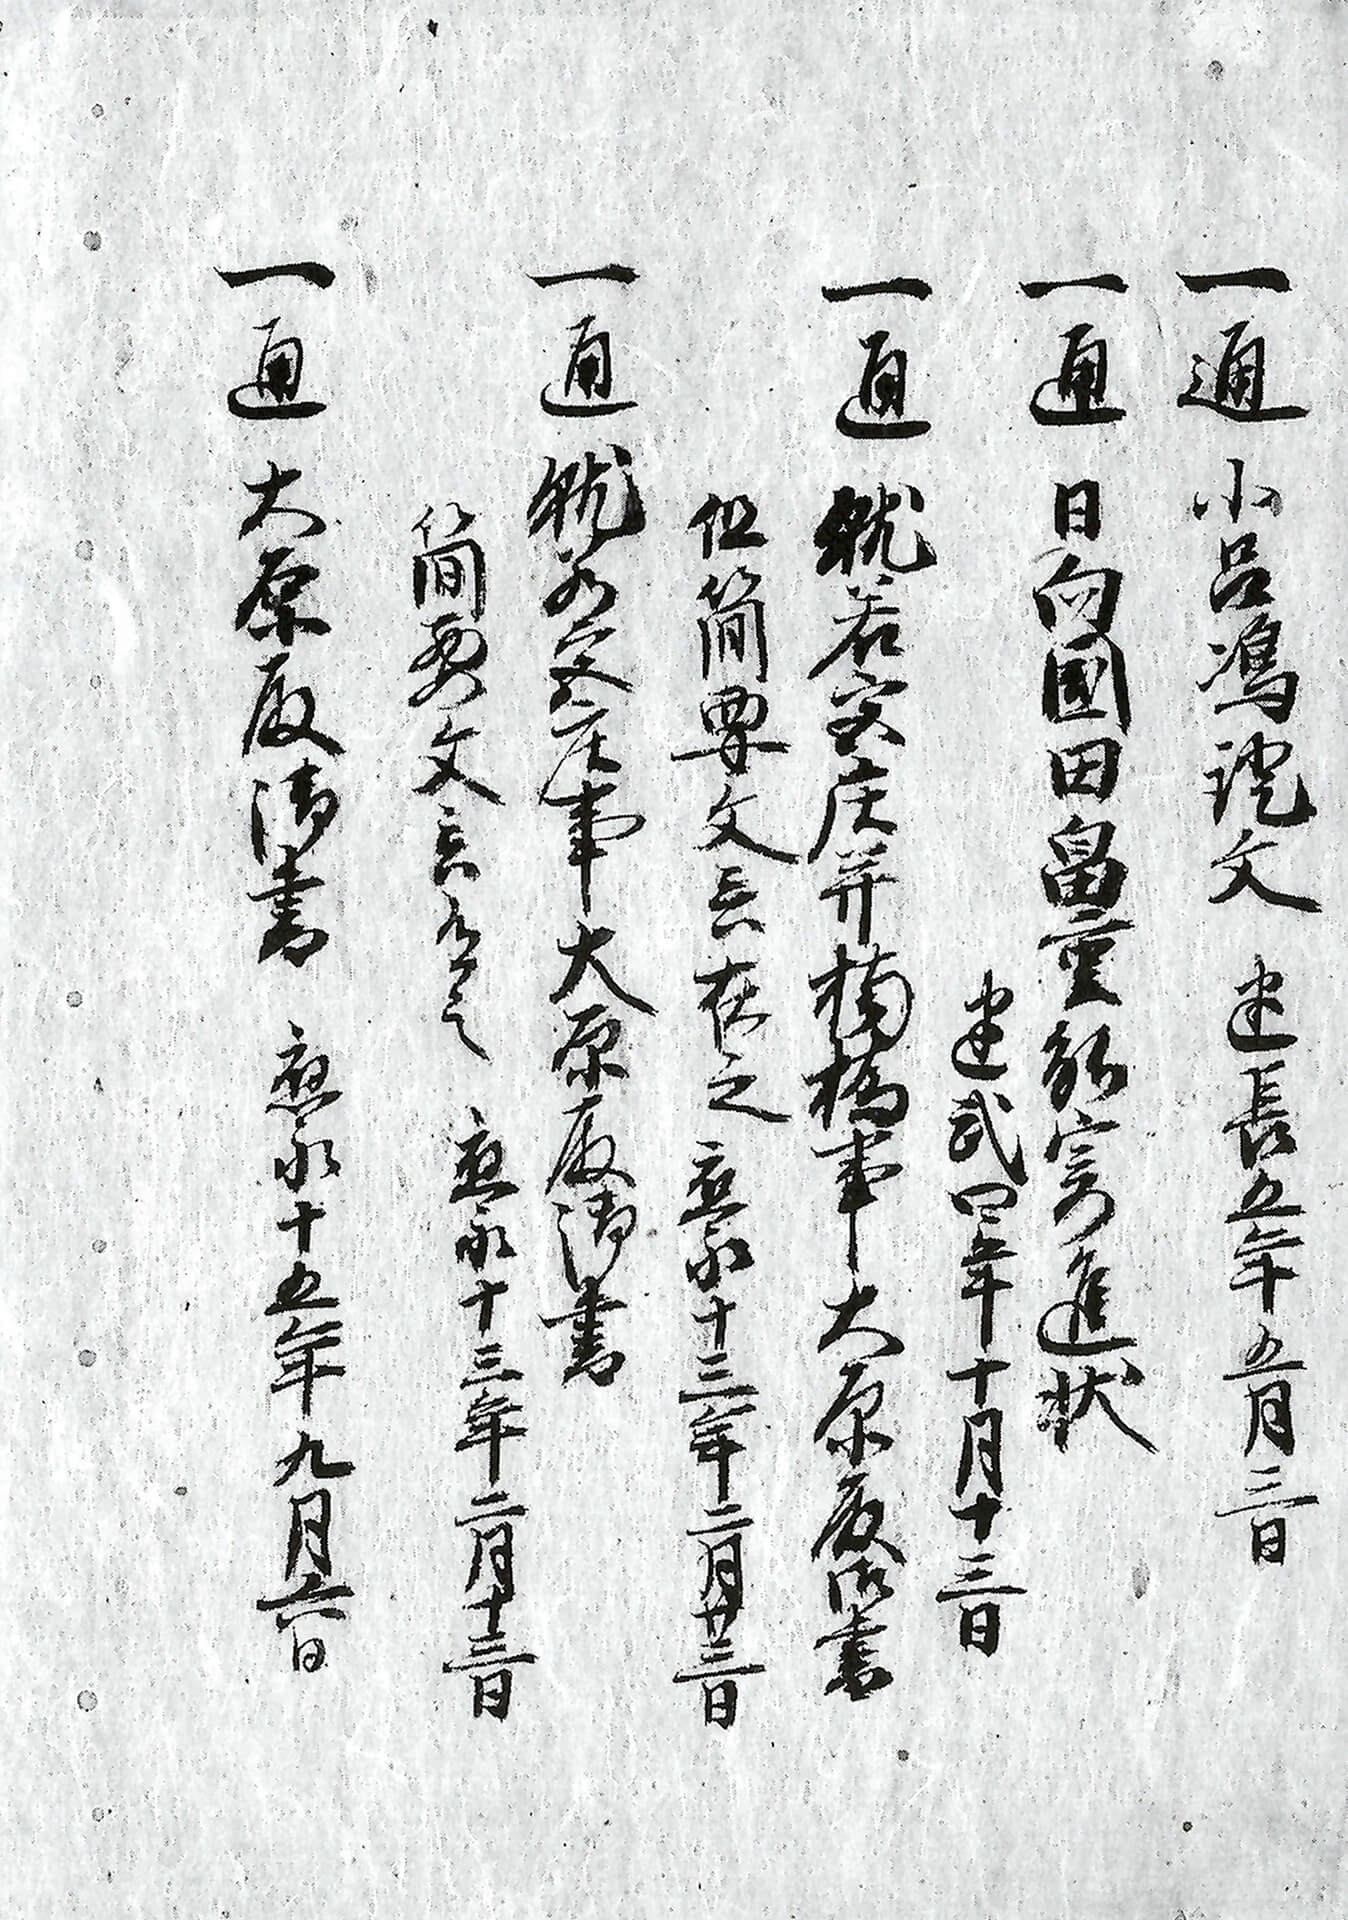 一通 小呂嶋証文 建長五年五月三日
一通 日向國田畠重能寄進状
建武四年十月十三日
一通 就若宮庄并楠橋事大原殿御書
但簡要文言在之 應永十三年二月廿三日
一通 就若宮庄事大原殿御書
簡要文言有之 應永十三年二月十三日
一通 大原殿御書 應永十五年九月六日